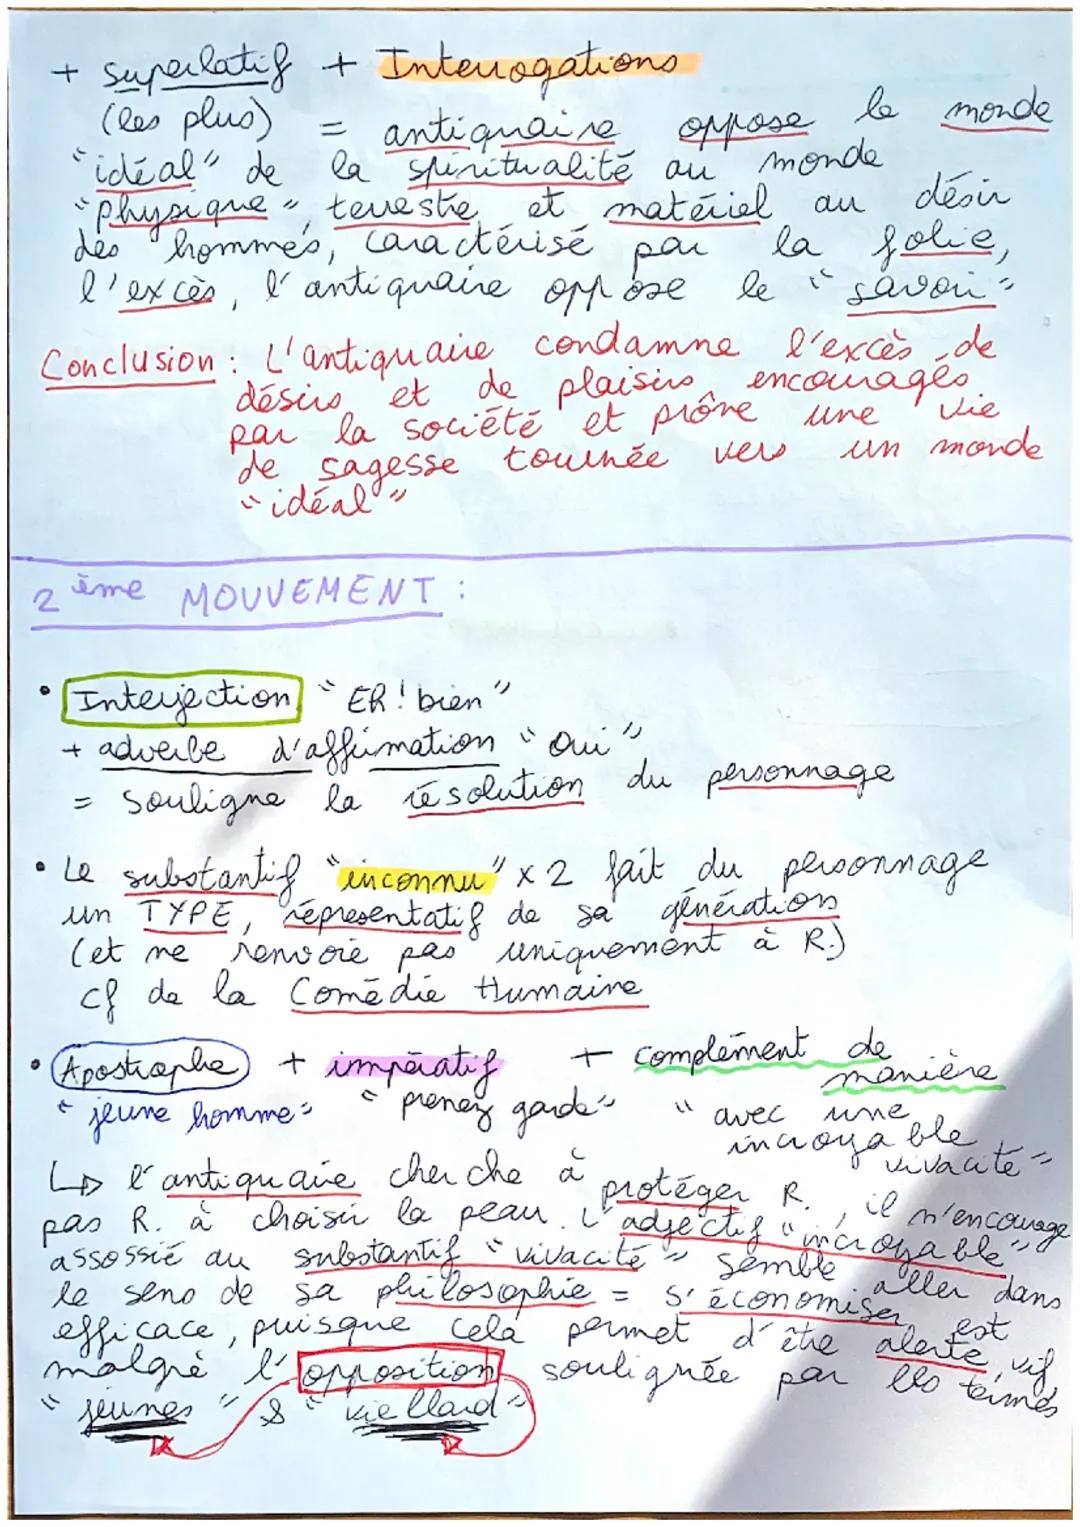 + superlatif + Interrogations
(les plus) = antiquaire oppose le monde
"idéal" de la spiritualité au monde
"physique", terrestre et matériel au désir
des hommes, caractérisé par la folie,
l'excès, l'antiquaire oppose le "savoir"
Conclusion : L'antiquaire condamne l'excès de
désirs et de plaisirs encouragés
par la société et prône une vie
de sagesse tournée vers un monde
"idéal"
2ème MOUVEMENT :
• Interjection "Eh! bien"
+ adverbe d'affirmation "oui"
= souligne la résolution du personnage
• Le substantif "inconnu" x2 fait du personnage
un TYPE, représentatif de sa génération
(et ne renvoie pas uniquement à R.)
cf de la Comédie Humaine
• Apostrophe + impératif + complément de manière
"jeune homme" "prenez garde" "avec une incroyable vivacité"
↳ l'antiquaire cherche à protéger R., il n'encourage
pas R. à choisir la peau. L'adjectif "incroyable"
assossié au substantif "vivacité" semble aller dans
le sens de sa philosophie = s'économiser est
efficace, puisque cela permet d'être alerte, vif
malgré l'opposition soulignée par les termes
"jeunes" & "vieillard"